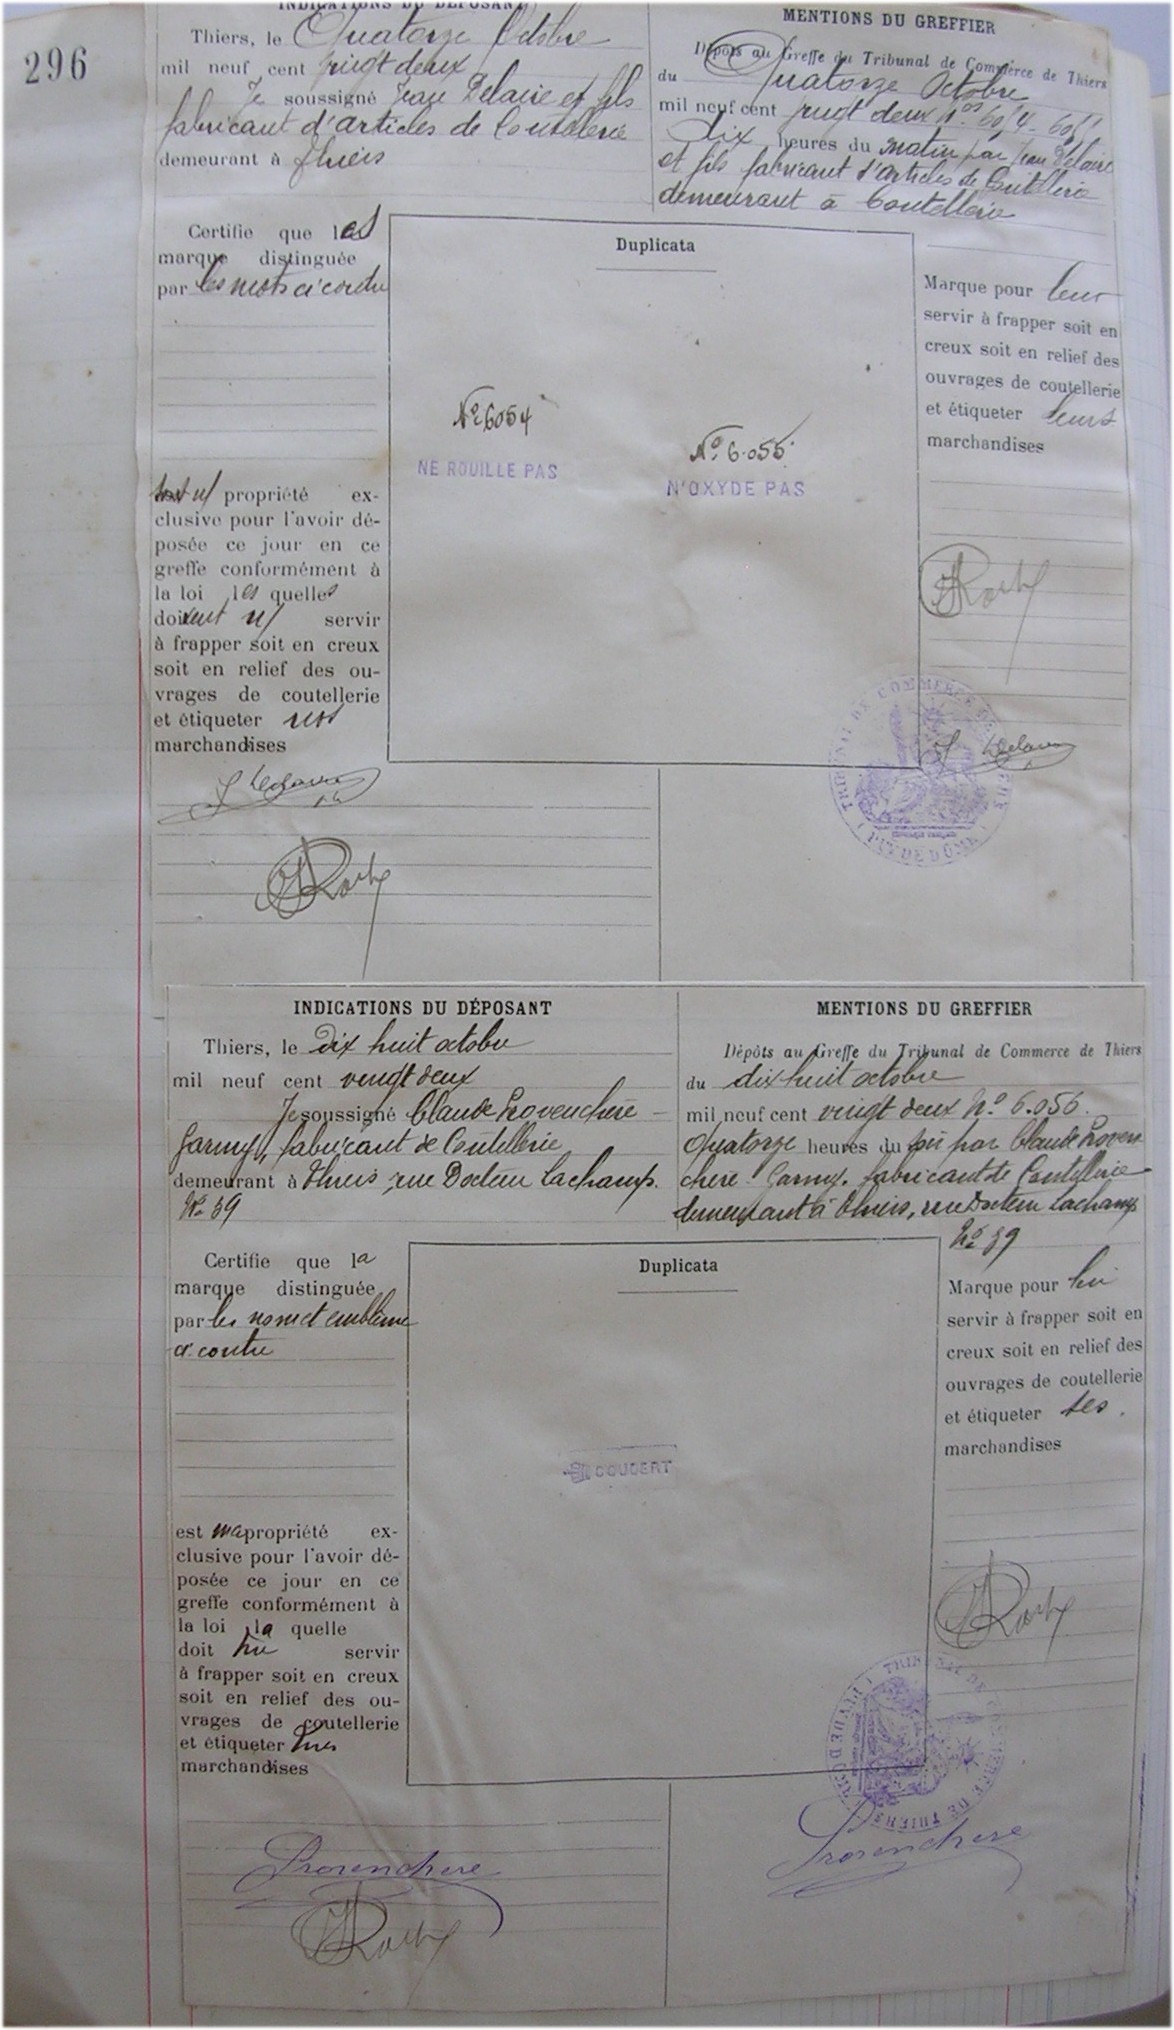 296
INDICATIONS DU DÉPOSANT
Thiers, le Quatorze Octobre
mil neuf cent vingt deux
Je soussigné Jean Delaire et fils
fabricant d'articles de Coutellerie
demeurant à Thiers
MENTIONS DU GREFFIER
Dépôts au Greffe du Tribunal de Commerce de Thiers
du Quatorze Octobre
mil neuf cent vingt deux Nos 6054-6055
Dix heures du matin par Jean Delaire
et fils fabricant d'articles de Coutellerie
demeurant à Coutellerie
Certifie que les
marque distinguée
par les mots ci contre
propriété ex-
clusive pour l'avoir dé-
posée ce jour en ce
greffe conformément à
la loi les quelles
doivent servir
à frapper soit en creux
soit en relief des ou-
vrages de coutellerie
et étiqueter nos
marchandises
Duplicata
No 6054
NE ROUILLE PAS
No 6.055
N'OXYDE PAS
Marque pour leur
servir à frapper soit en
creux soit en relief des
ouvrages de coutellerie
et étiqueter leurs
marchandises
TRIBUNAL DE COMMERCE DE THIERS
(PUY DE DÔME)
J Delaire
J Delaire
INDICATIONS DU DÉPOSANT
Thiers, le Dix huit octobre
mil neuf cent vingt deux
Je soussigné Claude Provenchère
Garmy, fabricant de Coutellerie
demeurant à Thiers, rue Docteur Lachamp.
No 39
MENTIONS DU GREFFIER
Dépôts au Greffe du Tribunal de Commerce de Thiers
du dix huit octobre
mil neuf cent vingt deux No 6.056.
Quatorze heures du soir par Claude Proven
chère Garmy. fabricant de Coutellerie
demeurant à Thiers, rue Docteur Lachamp
No 39
Certifie que la
marque distinguée
par les nom et emblème
ci contre
est ma propriété ex-
clusive pour l'avoir dé-
posée ce jour en ce
greffe conformément à
la loi la quelle
doit me servir
à frapper soit en creux
soit en relief des ou-
vrages de coutellerie
et étiqueter mes
marchandises
Duplicata
COUDERT
Marque pour lui
servir à frapper soit en
creux soit en relief des
ouvrages de coutellerie
et étiqueter ses.
marchandises
TRIBUNAL DE COMMERCE DE THIERS
(PUY DE DÔME)
Provenchere
Provenchere